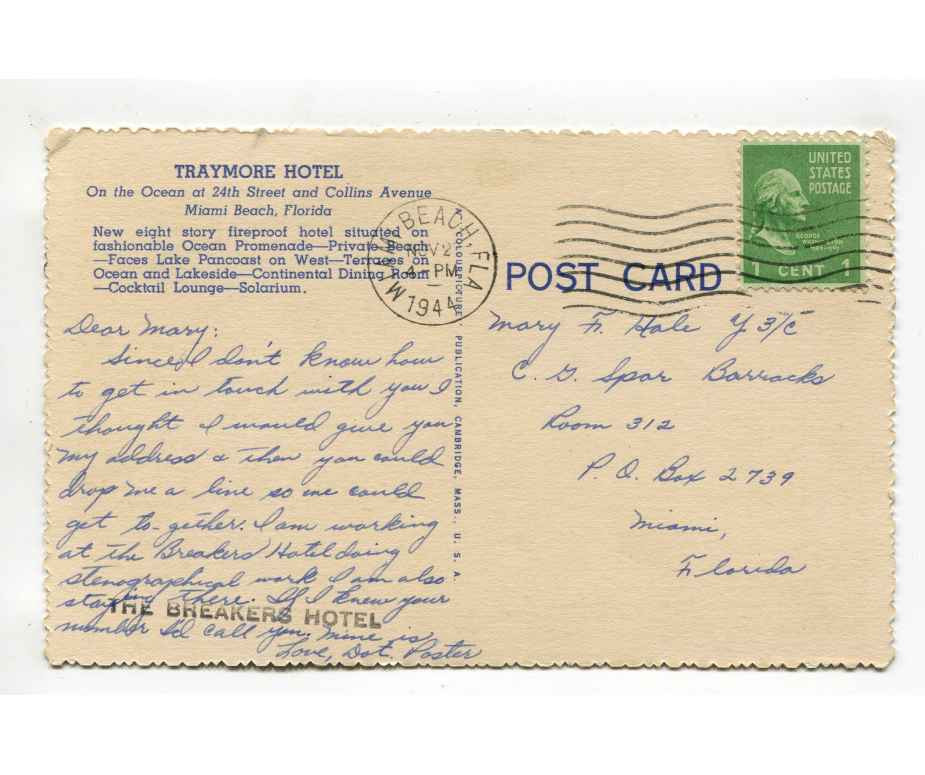 TRAYMORE HOTEL
On the Ocean at 24th Street and Collins Avenue
Miami Beach, Florida
New eight story fireproof hotel situated on
fashionable Ocean Promenade—Private Beach
—Faces Lake Pancoast on West—Terraces on
Ocean and Lakeside—Continental Dining Room
—Cocktail Lounge—Solarium.
MIAMI BEACH, FLA
NOV 2
4 PM
1944
COLOURPICTURE PUBLICATION, CAMBRIDGE, MASS., U. S. A.
POST CARD
UNITED
STATES
POSTAGE
GEORGE
WASHINGTON
1 CENT 1
Dear Mary:
Since I don't know how
to get in touch with you I
thought I would give you
my address & then you could
drop me a line so we could
get to-gether. I am working
at the Breakers Hotel doing
stenographical work I am also
staying there. If I knew your
THE BREAKERS HOTEL
number I'd call you. Mine is
Love, Dot. Poster
Mary F. Hale Y 3/c
C. G. Spar Barracks
Room 312
P. O. Box 2739
Miami,
Florida